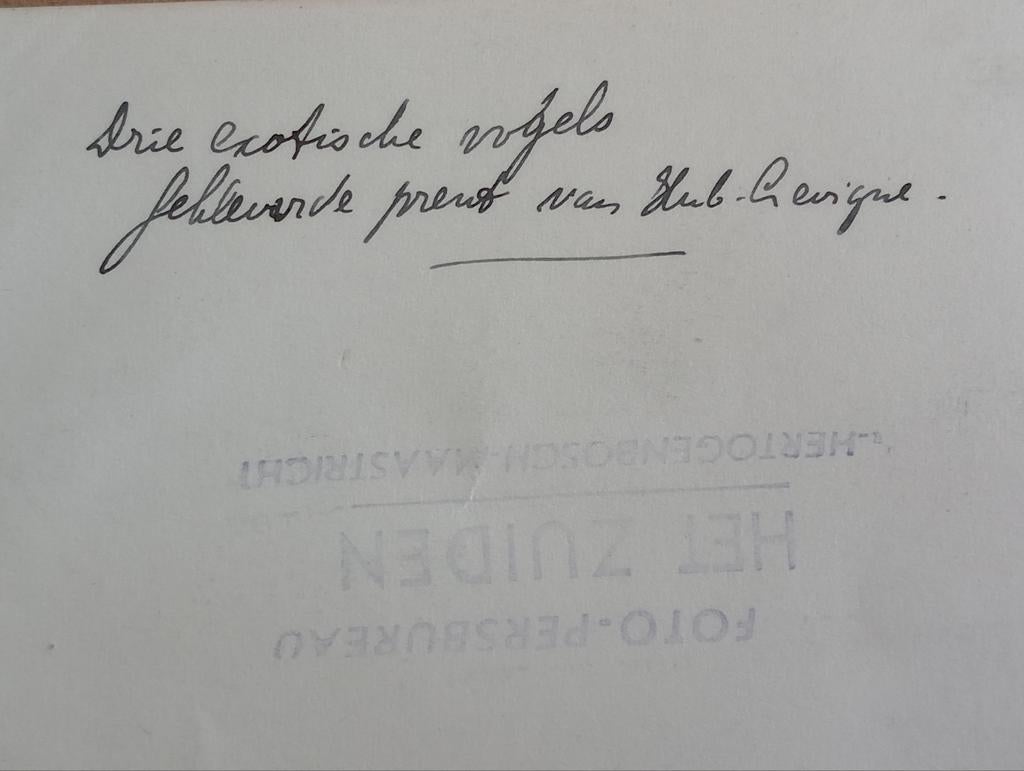 Drie exotische vogels
Gekleurde prent van Hub. Levigne.
's-HERTOGENBOSCH-MAASTRICHT
HET ZUIDEN
FOTO-PERSBUREAU